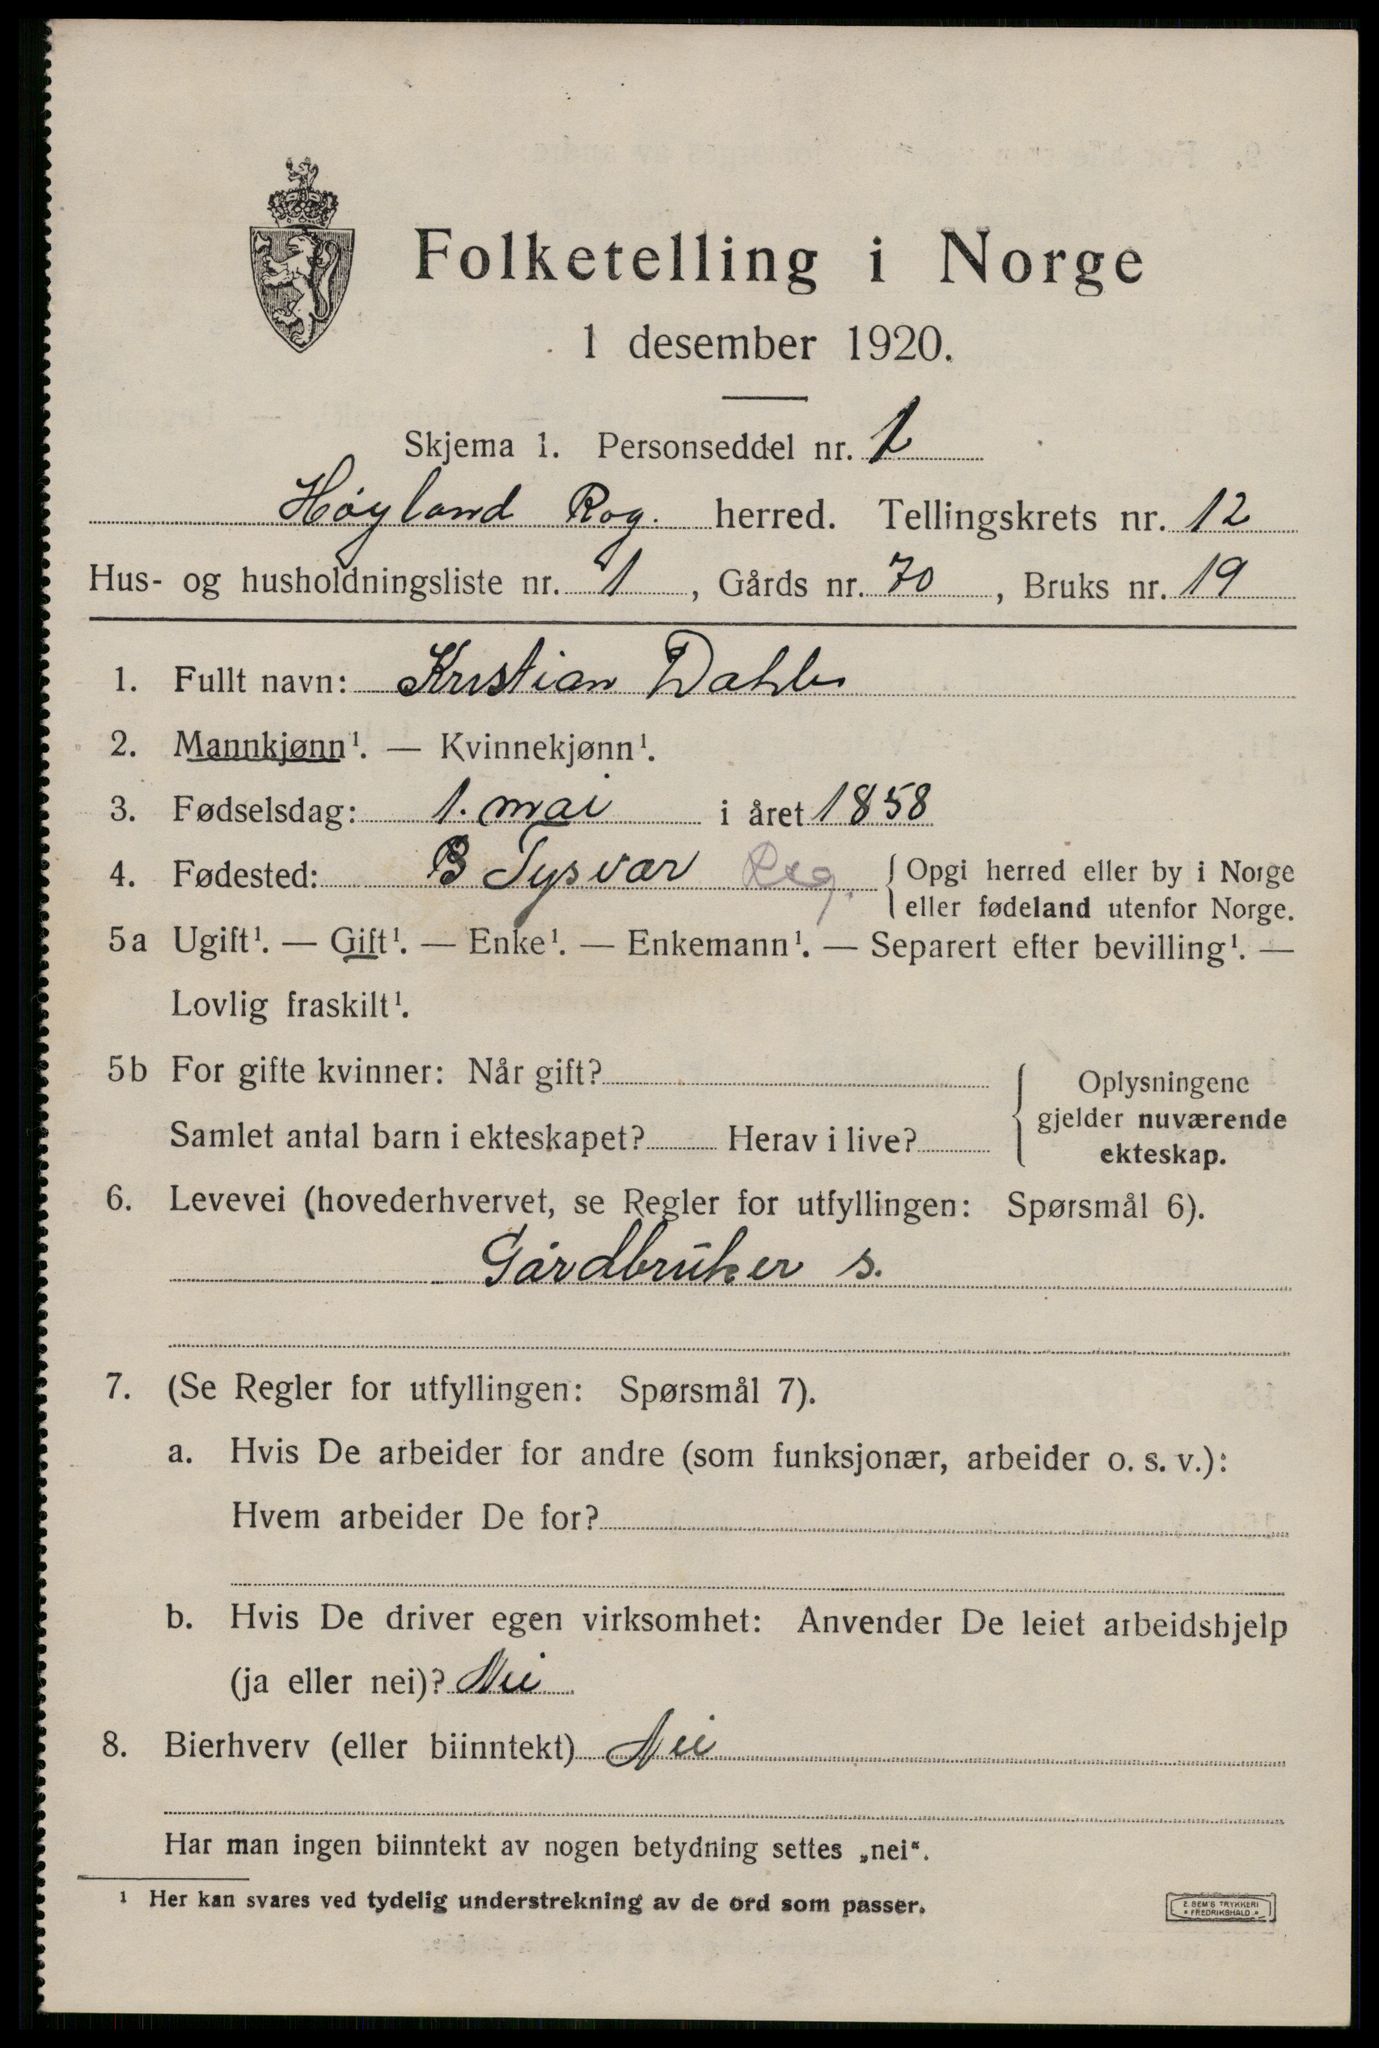 Folketelling i Norge
1 desember 1920.
Skjema 1. Personseddel nr. 1
Høyland Rog. herred. Tellingskrets nr. 12
Hus- og husholdningsliste nr. 1, Gårds nr. 70, Bruks nr. 19
1. Fullt navn: Kristian Dahle
2. Mannkjønn¹. — Kvinnekjønn¹.
3. Fødselsdag: 1. mai i året 1858
4. Fødested: B Tysvær Rog. { Opgi herred eller by i Norge
eller fødeland utenfor Norge.
5a Ugift¹. — Gift¹. — Enke¹. — Enkemann¹. — Separert efter bevilling¹. —
Lovlig fraskilt¹.
5b For gifte kvinner: Når gift?
Samlet antal barn i ekteskapet? Herav i live?
Oplysningene
gjelder nuværende
ekteskap.
6. Levevei (hovederhvervet, se Regler for utfyllingen: Spørsmål 6).
Gårdbruker s.
7. (Se Regler for utfyllingen: Spørsmål 7).
a. Hvis De arbeider for andre (som funksjonær, arbeider o. s. v.):
Hvem arbeider De for?
b. Hvis De driver egen virksomhet: Anvender De leiet arbeidshjelp
(ja eller nei)? Nei
8. Bierhverv (eller biinntekt) Nei
Har man ingen biinntekt av nogen betydning settes „nei“.
¹ Her kan svares ved tydelig understrekning av de ord som passer.
E. SEM'S TRYKKERI
FREDRIKSHALD